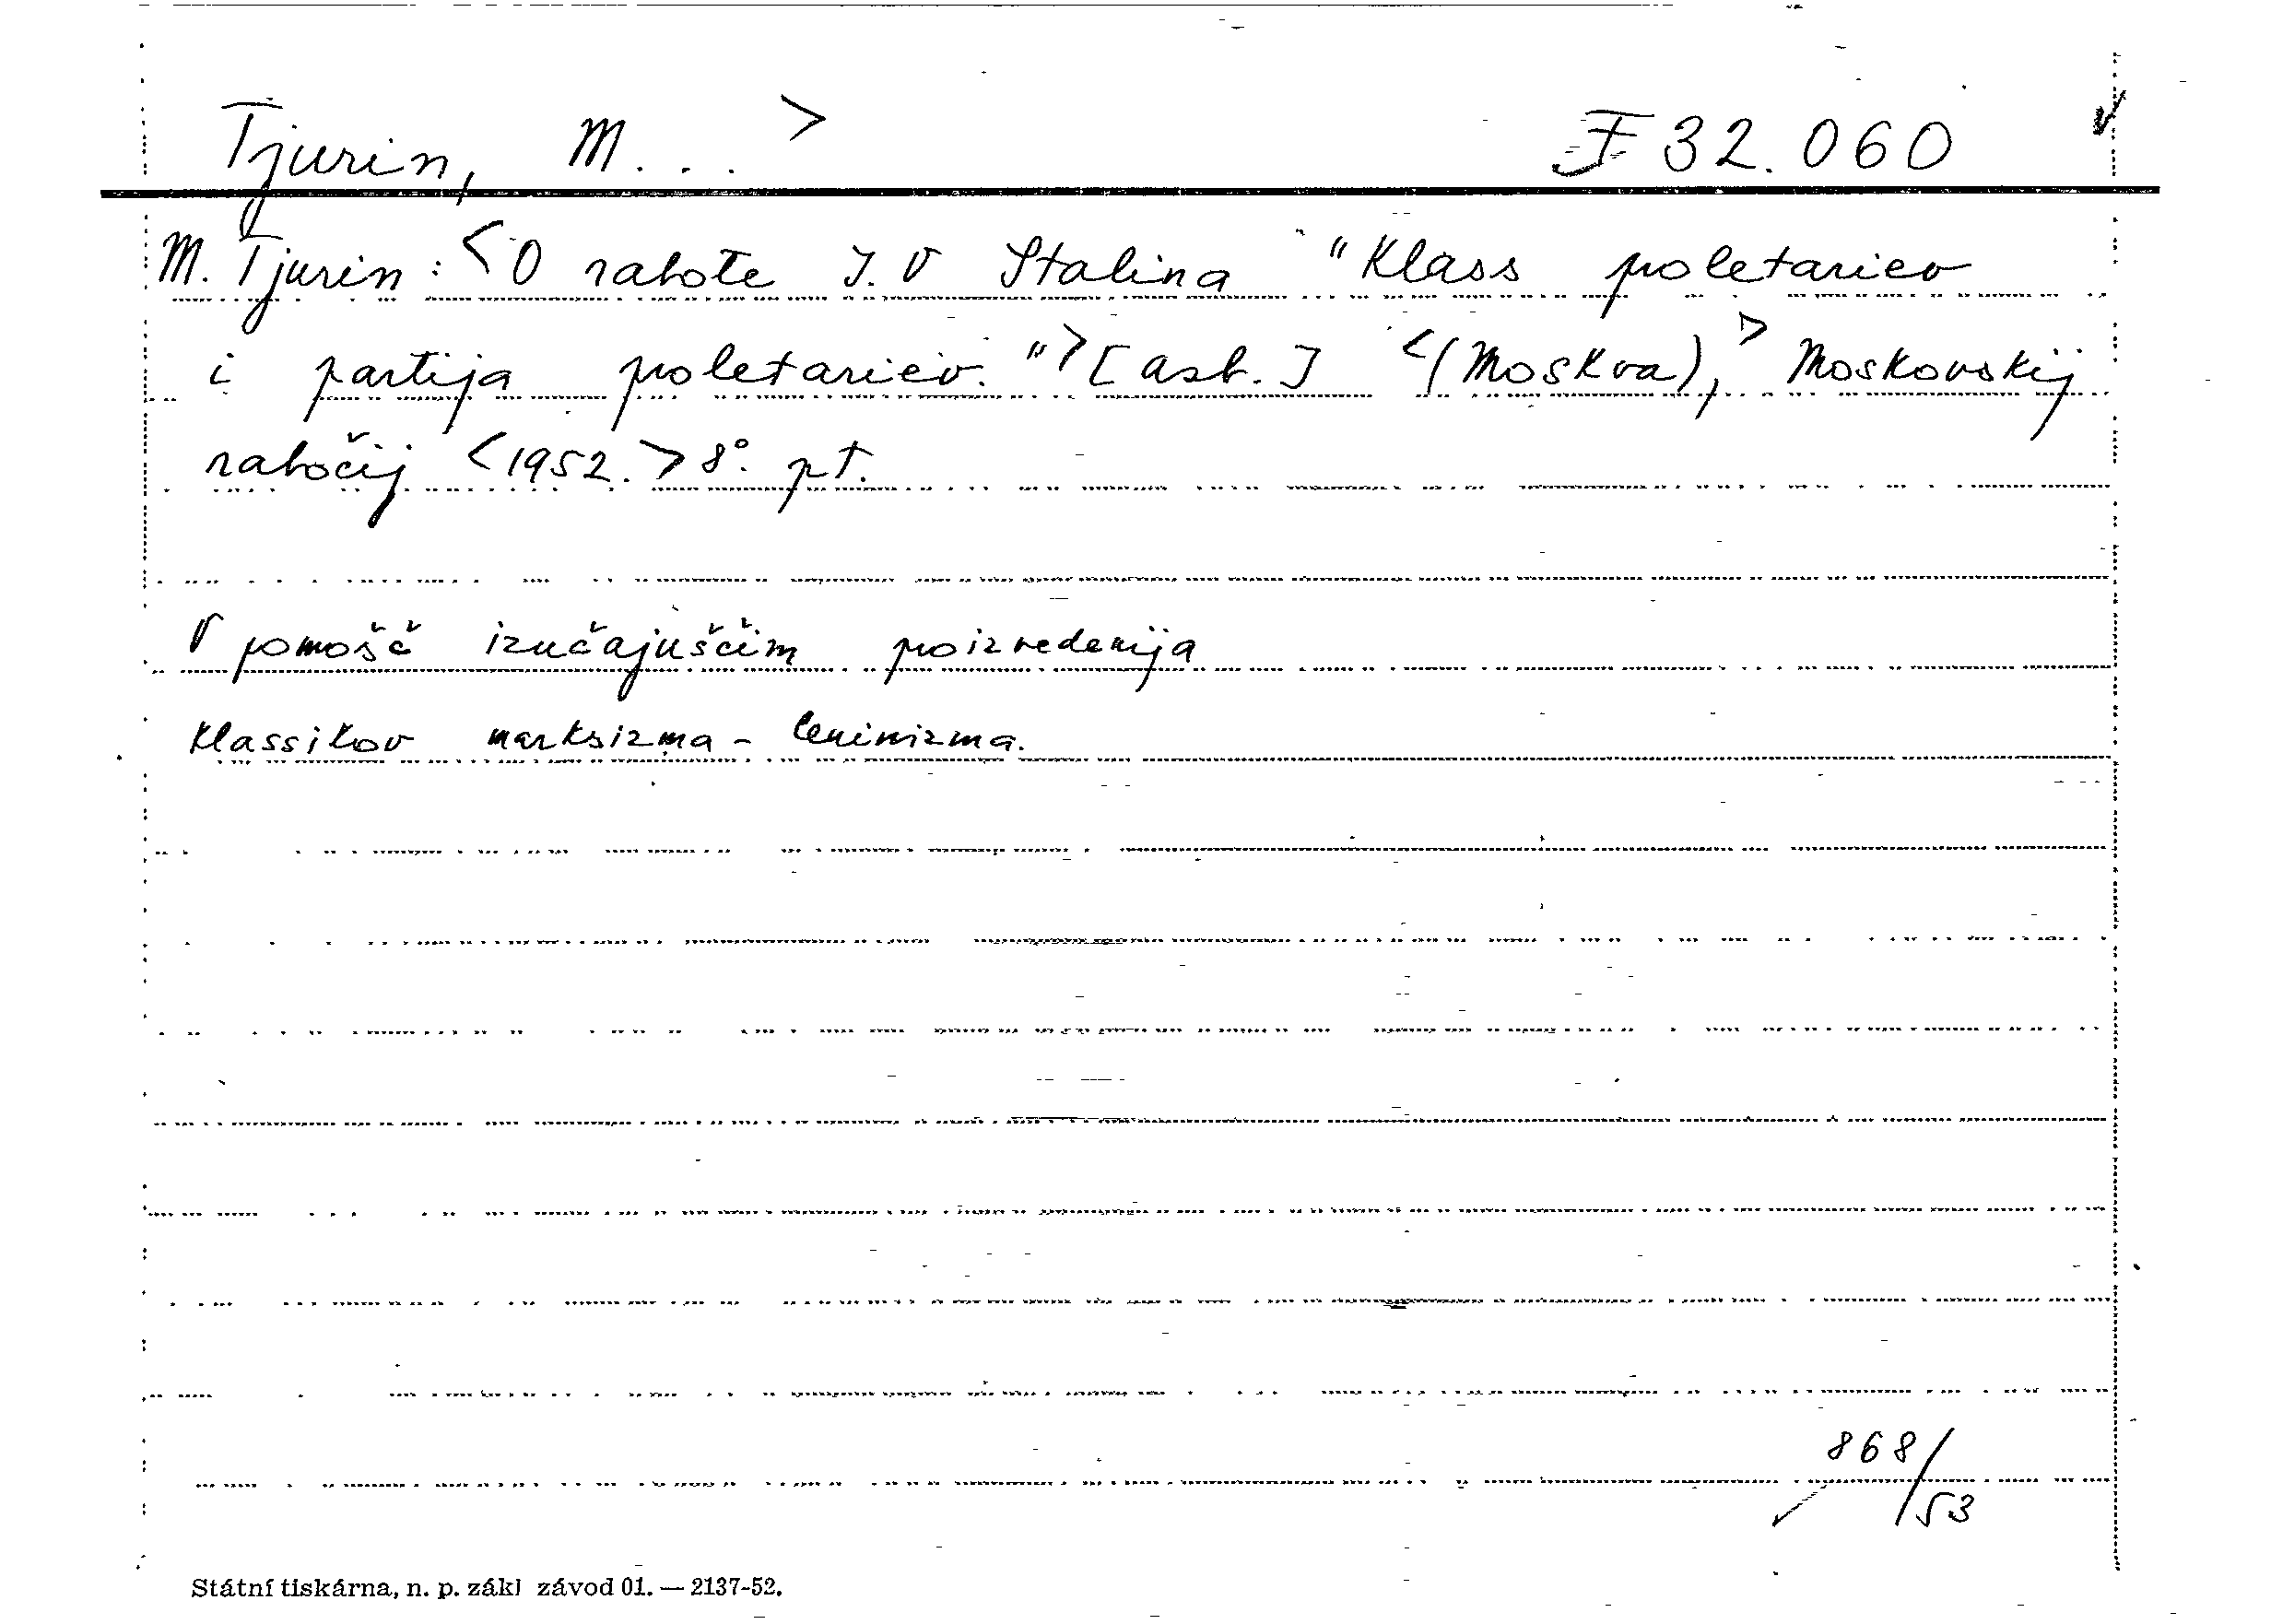 Tjurin, M... > F 32.060
M. Tjurin: <O rabote J. V Stalina "Klass proletariev
i partija proletariev."> [azb.] <(Moskva),> Moskovskij
rabočij <1952.> 8°. pt.
V pomošč izučajuščim proizvedenija
klassikov marksizma-leninizma.
868/53
Státní tiskárna, n. p. zákl závod 01. — 2137-52.